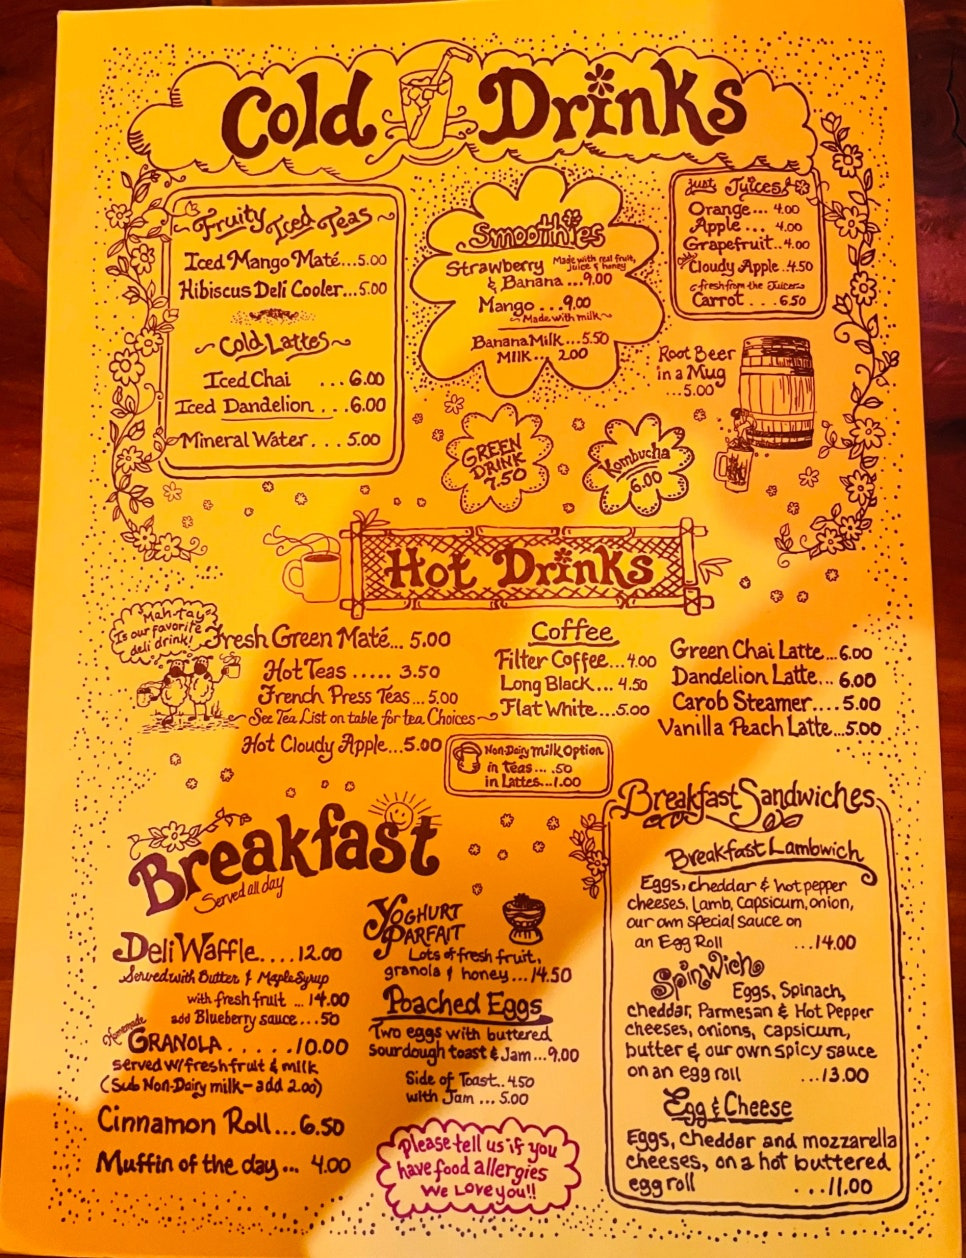 Cold Drinks
Fruity Iced Teas
Iced Mango Maté...5.00
Hibiscus Deli Cooler...5.00
~Cold Lattes~
Iced Chai ...6.00
Iced Dandelion ....6.00
Mineral Water....5.00
Smoothies
Made with real fruit,
juice & honey
Strawberry
& Banana...9.00
Mango....9.00
~Made with milk~
Banana Milk...5.50
Milk... 2.00
Just Juices!
Orange... 4.00
Apple ... 4.00
Grapefruit..4.00
Cloudy Apple..4.50
fresh from the Juicer
Carrot ....6.50
Root Beer
in a Mug
...5.00
GREEN
DRINK
7.50
Kombucha
6.00
Hot Drinks
Mah-tay
Is our favorite
deli drink!
Fresh Green Maté... 5.00
Hot Teas ..... 3.50
French Press Teas...5.00
~See Tea List on table for tea Choices~
Hot Cloudy Apple...5.00
Coffee
Filter Coffee...4.00
Long Black... 4.50
Flat White...5.00
Non-Dairy Milk Option
in Teas.... .50
in Lattes...1.00
Green Chai Latte...6.00
Dandelion Latte... 6.00
Carob Steamer....5.00
Vanilla Peach Latte...5.00
Breakfast
Served all day
Deli Waffle....12.00
Served with Butter & Maple Syrup
with fresh fruit ... 14.00
add Blueberry sauce...50
Homemade
GRANOLA......10.00
served w/fresh fruit & milk
(Sub Non-Dairy milk-add 2.00)
Cinnamon Roll...6.50
Muffin of the day... 4.00
YOGHURT
PARFAIT
Lots of fresh fruit,
granola & honey...14.50
Poached Eggs
Two eggs with buttered
sourdough toast & Jam...9.00
Side of Toast..4.50
with Jam ... 5.00
Please tell us if you
have food allergies
We Love you!!
Breakfast Sandwiches
Breakfast Lambwich
Eggs, cheddar & hot pepper
cheeses, lamb, capsicum, onion,
our own special sauce on
an Egg Roll ...14.00
Spinwich
Eggs, Spinach,
cheddar, Parmesan & Hot Pepper
cheeses, onions, capsicum,
butter & our own spicy sauce
on an egg roll ...13.00
Egg & Cheese
Eggs, cheddar and mozzarella
cheeses, on a hot buttered
egg roll ...11.00